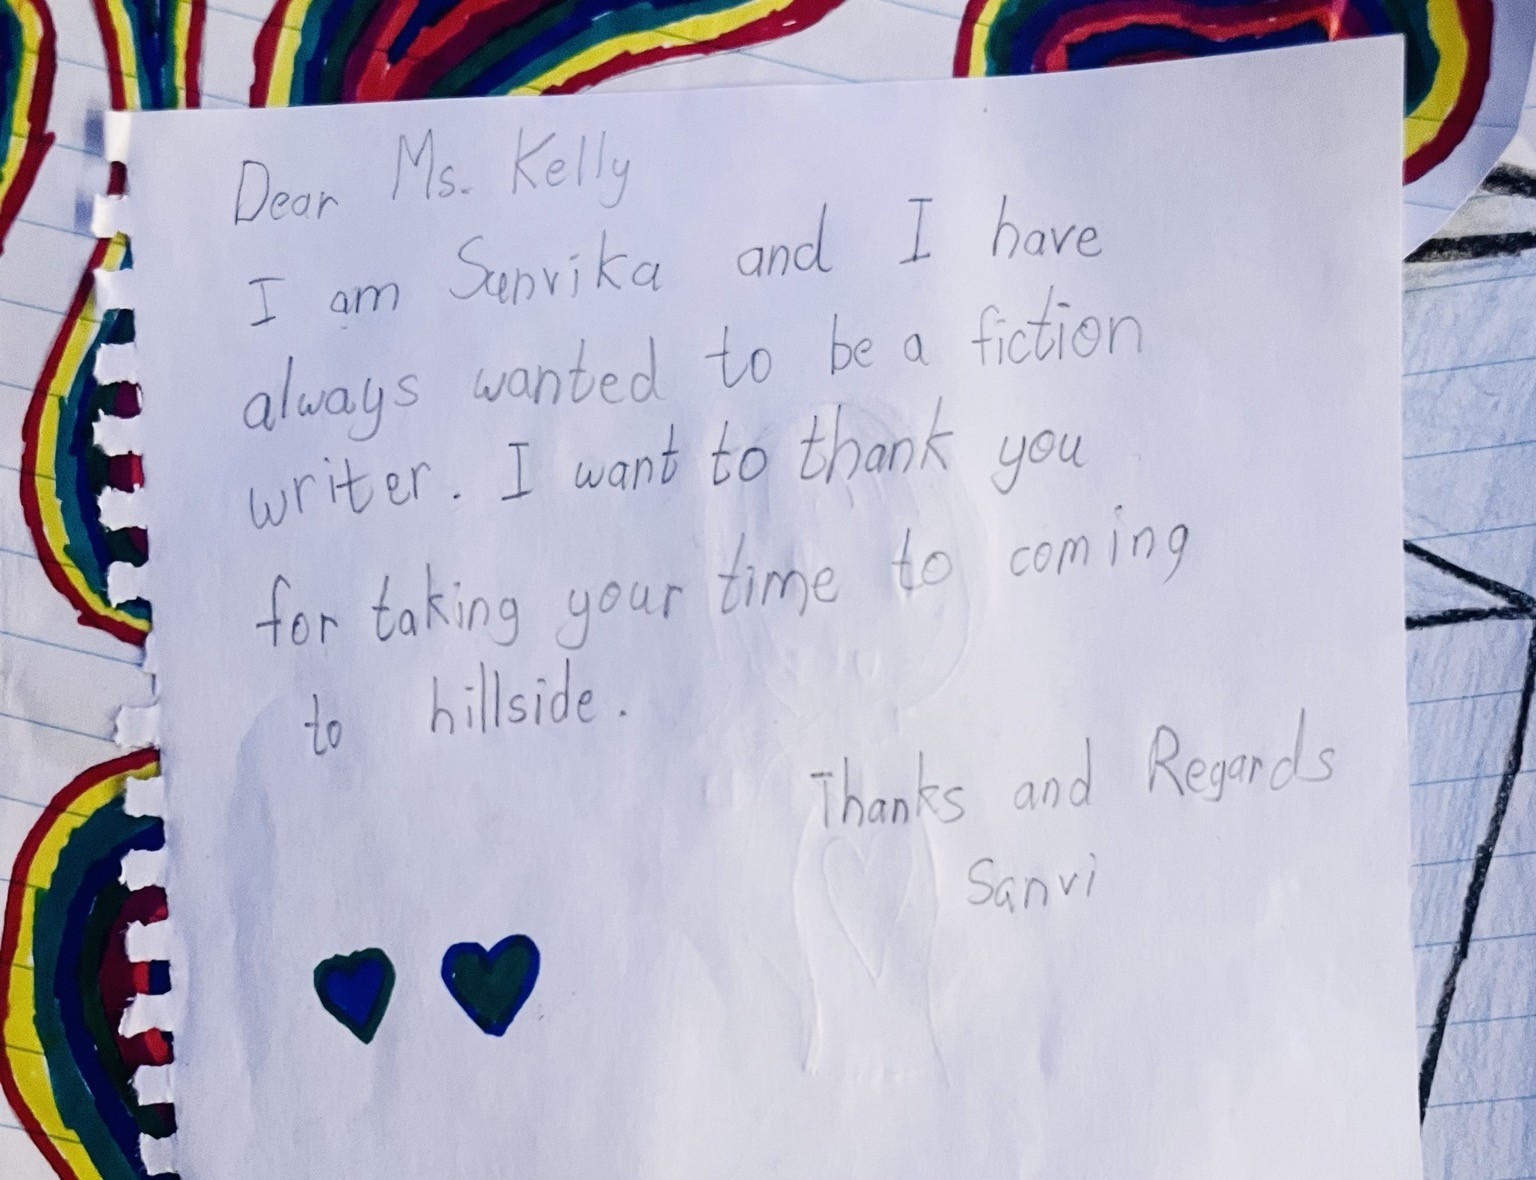 Dear Ms. Kelly
I am Sanvika and I have
always wanted to be a fiction
writer. I want to thank you
for taking your time to coming
to hillside.
Thanks and Regards
Sanvi